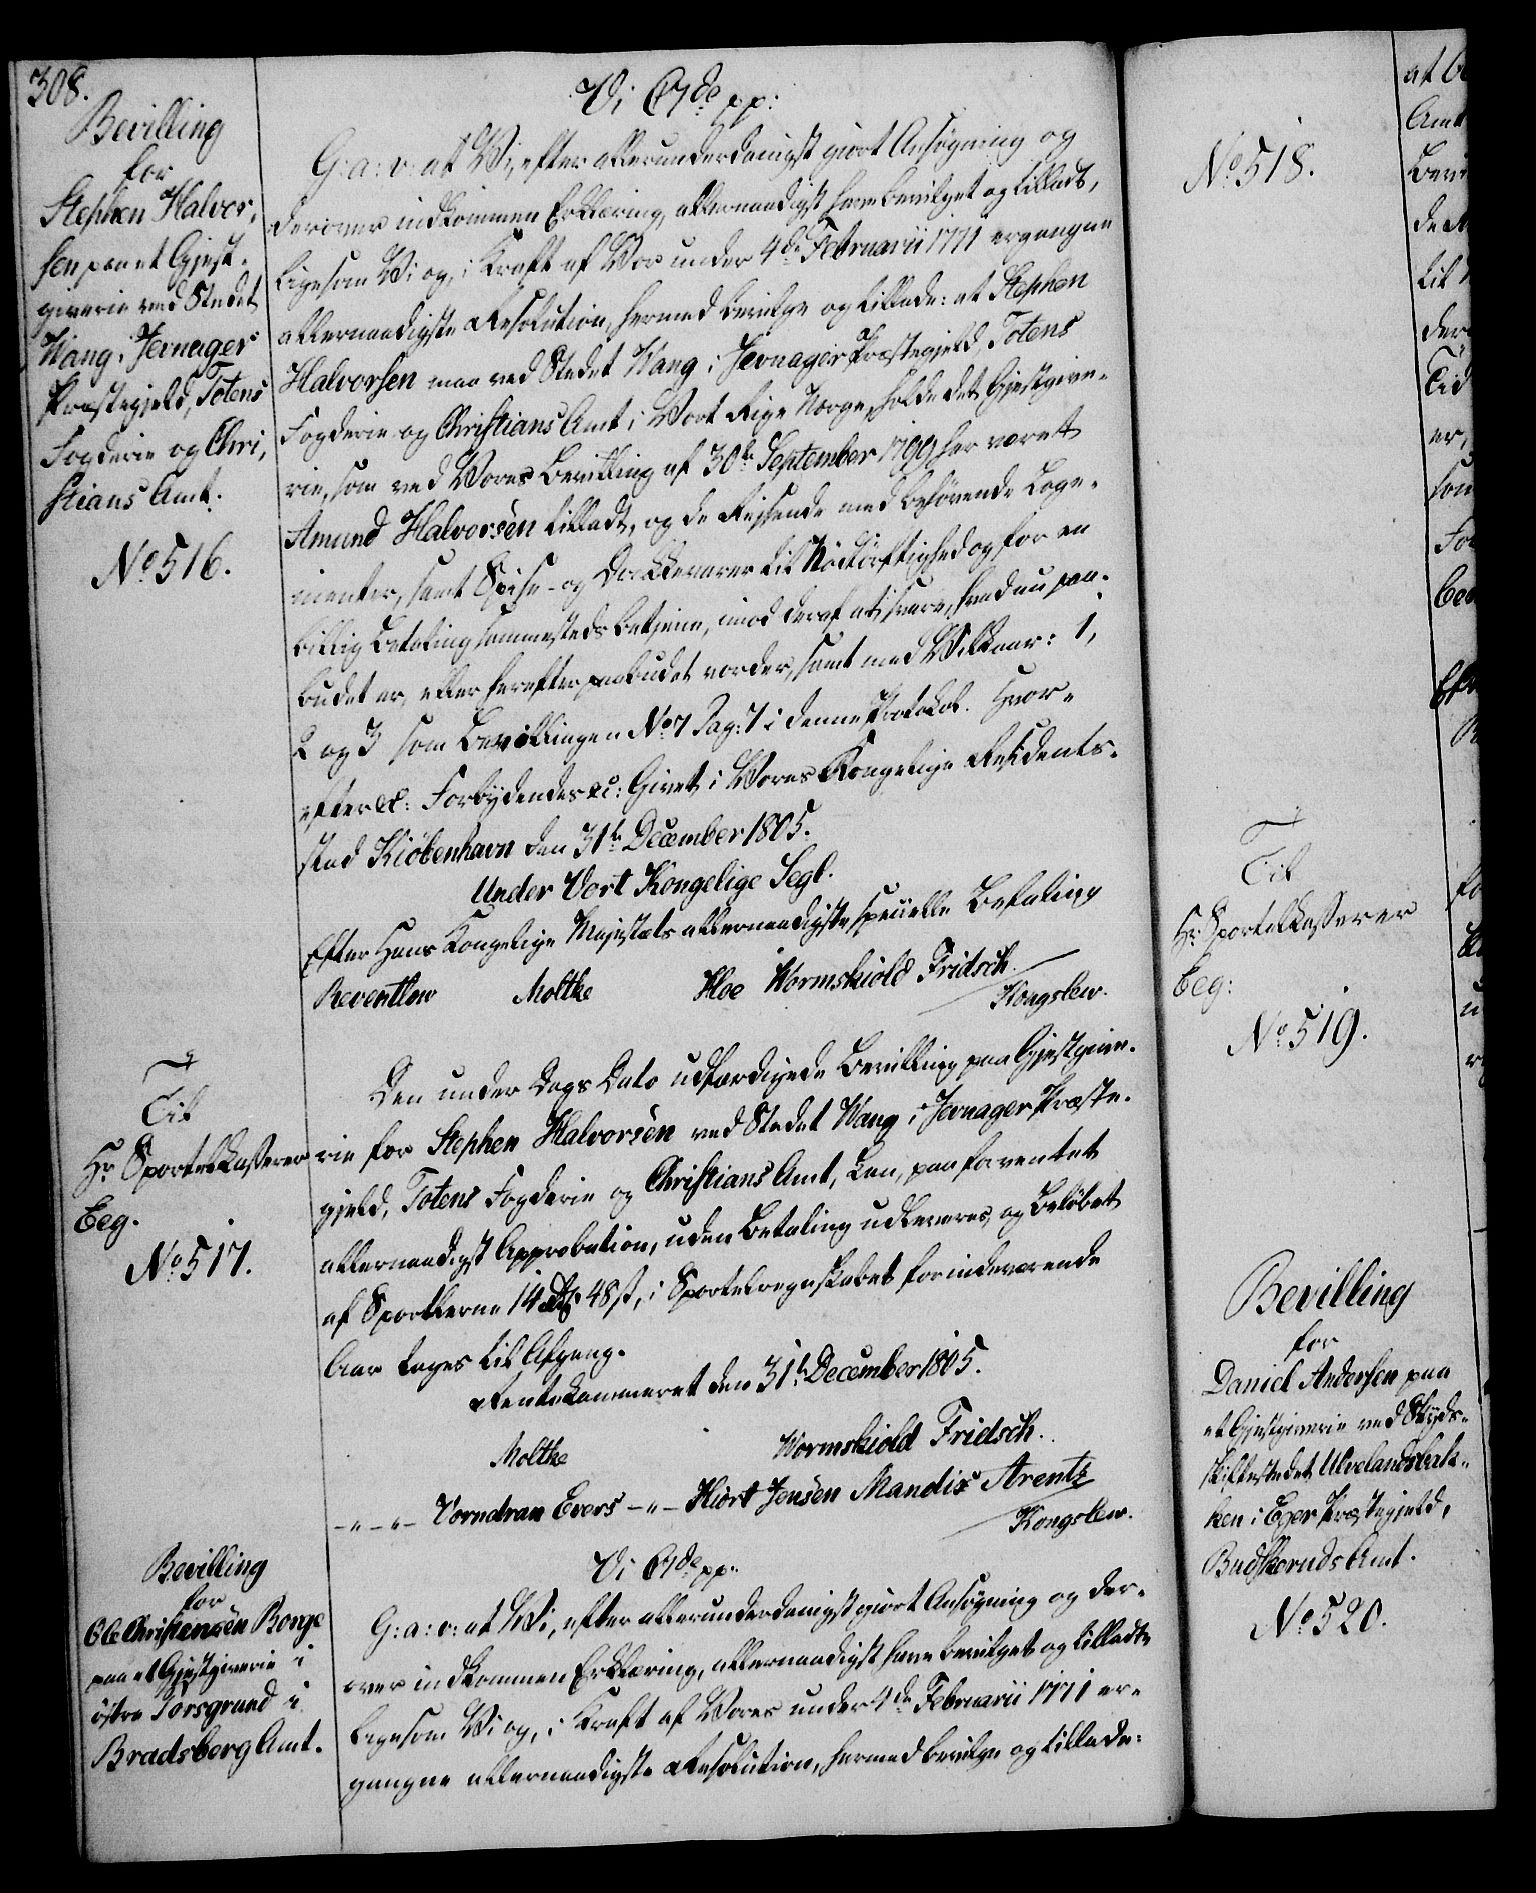 308.
Bevilling
for
Stephen Halvor,
sen paa et Gjest-
giverie ved Stedet
Wang i Jevnager
Præstegjeld, Totens
Fogderie og Chri,
stians Amt.
No 516.
Vi C7de pp:
G: a: v: at Vi, efter allerunderdanigst giort Ansøgning og
derover indkommen Erklæring, allernaadigst have bevilget og tilladt,
ligesom Vi og, i Kraft af Vor under 4de Februarii 1771 ergangne
allernaadigste Resolution, hermed bevilge og tillade: at Stephen
Halvorsen maa ved Stedet Wang i Jevnager Præstegjeld, Totens
Fogderie og Christians Amt i Vort Rige Norge, holde det Gjestgive-
rie, som ved Vores Bevilling af 30te September 1799 har været
Amund Halvorsen tilladt, og de Reisende med behøvende Loge-
menter, samt Spise- og Drikkevarer til Nødtørftighed og for en
billig Betaling sammesteds betjene, imod deraf at svare, hvad nu paa-
budet er, eller herefter paabudet vorder, samt med Vilkaar: 1,
2 og 3 som Bevillingen No 7 Pag: 7 i denne Protokol. Hvor-
efter etc: Forbydendes etc: Givet i Vores Kongelige Residents-
stad Kiöbenhavn den 31te December 1805.
Under Vort Kongelige Segl.
Efter Hans Kongelige Majestæts allernaadigste specielle Befaling
Reventlow Moltke Hoe Wormskiold Fridsch
Kongslew.
Til
Hr Sportelkasserer
Eeg.
No 517.
Den under Dags Dato udfærdigede Bevilling paa Gjestgive-
rie for Stephen Halvorsen ved Stedet Wang i Jevnager Præste-
gjeld, Totens Fogderie og Christians Amt, kan, paa forventet
allernaadigst Approbation, uden Betaling udleveres, og Beløbet
af Sportlerne 14 Rd 48 s, i Sportelregnskabet for indeværende
Aar tages til Afgang.
Rentekammeret den 31te December 1805.
Moltke Wormskiold Fridsch.
-"-"- Vorndran Evers -"- Hiort Jensen Mandix Arentz
Kongslew.
Bevilling
for
Ole Christensen Borge
paa et Gjestgiverie i
östre Porsgrund i
Bradsberg Amt.
Vi C7de pp:
G: a: v: at Vi, efter allerunderdanigst giort Ansøgning og der-
over indkommen Erklæring, allernaadigst have bevilget og tilladt
ligesom Vi og, i Kraft af Vores under 4de Februarii 1771 er-
gangne allernaadigste Resolution, hermed bevilge og tillade:
No 518.
Til
Hr Sportelkasserer
Eeg:
No 519.
Bevilling
for
Daniel Andersen paa
et Gjestgiverie ved Skyds-
skiftestedet Ulvelandsbak-
ken i Eger Præstegjeld,
Budskeruds Amt.
No 520.